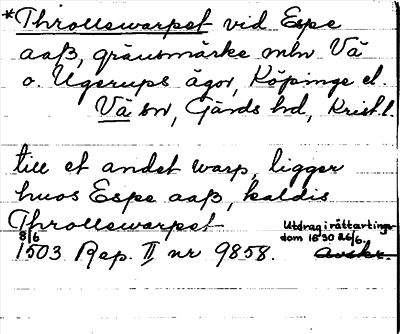 *Throllewarpet vid Espe
aaß, gränsmärke mln Vä
o. Ugerups ägor, Köpinge el.
Vä sn, Gärds hd, Krist. l.
till et andet warp, ligger
huos Espe aaß, kaldis
Throllewarpet
8/6
1503 Rep. II nr 9858.
Utdrag i rättartings-
dom 1630 26/6.
Avskr.